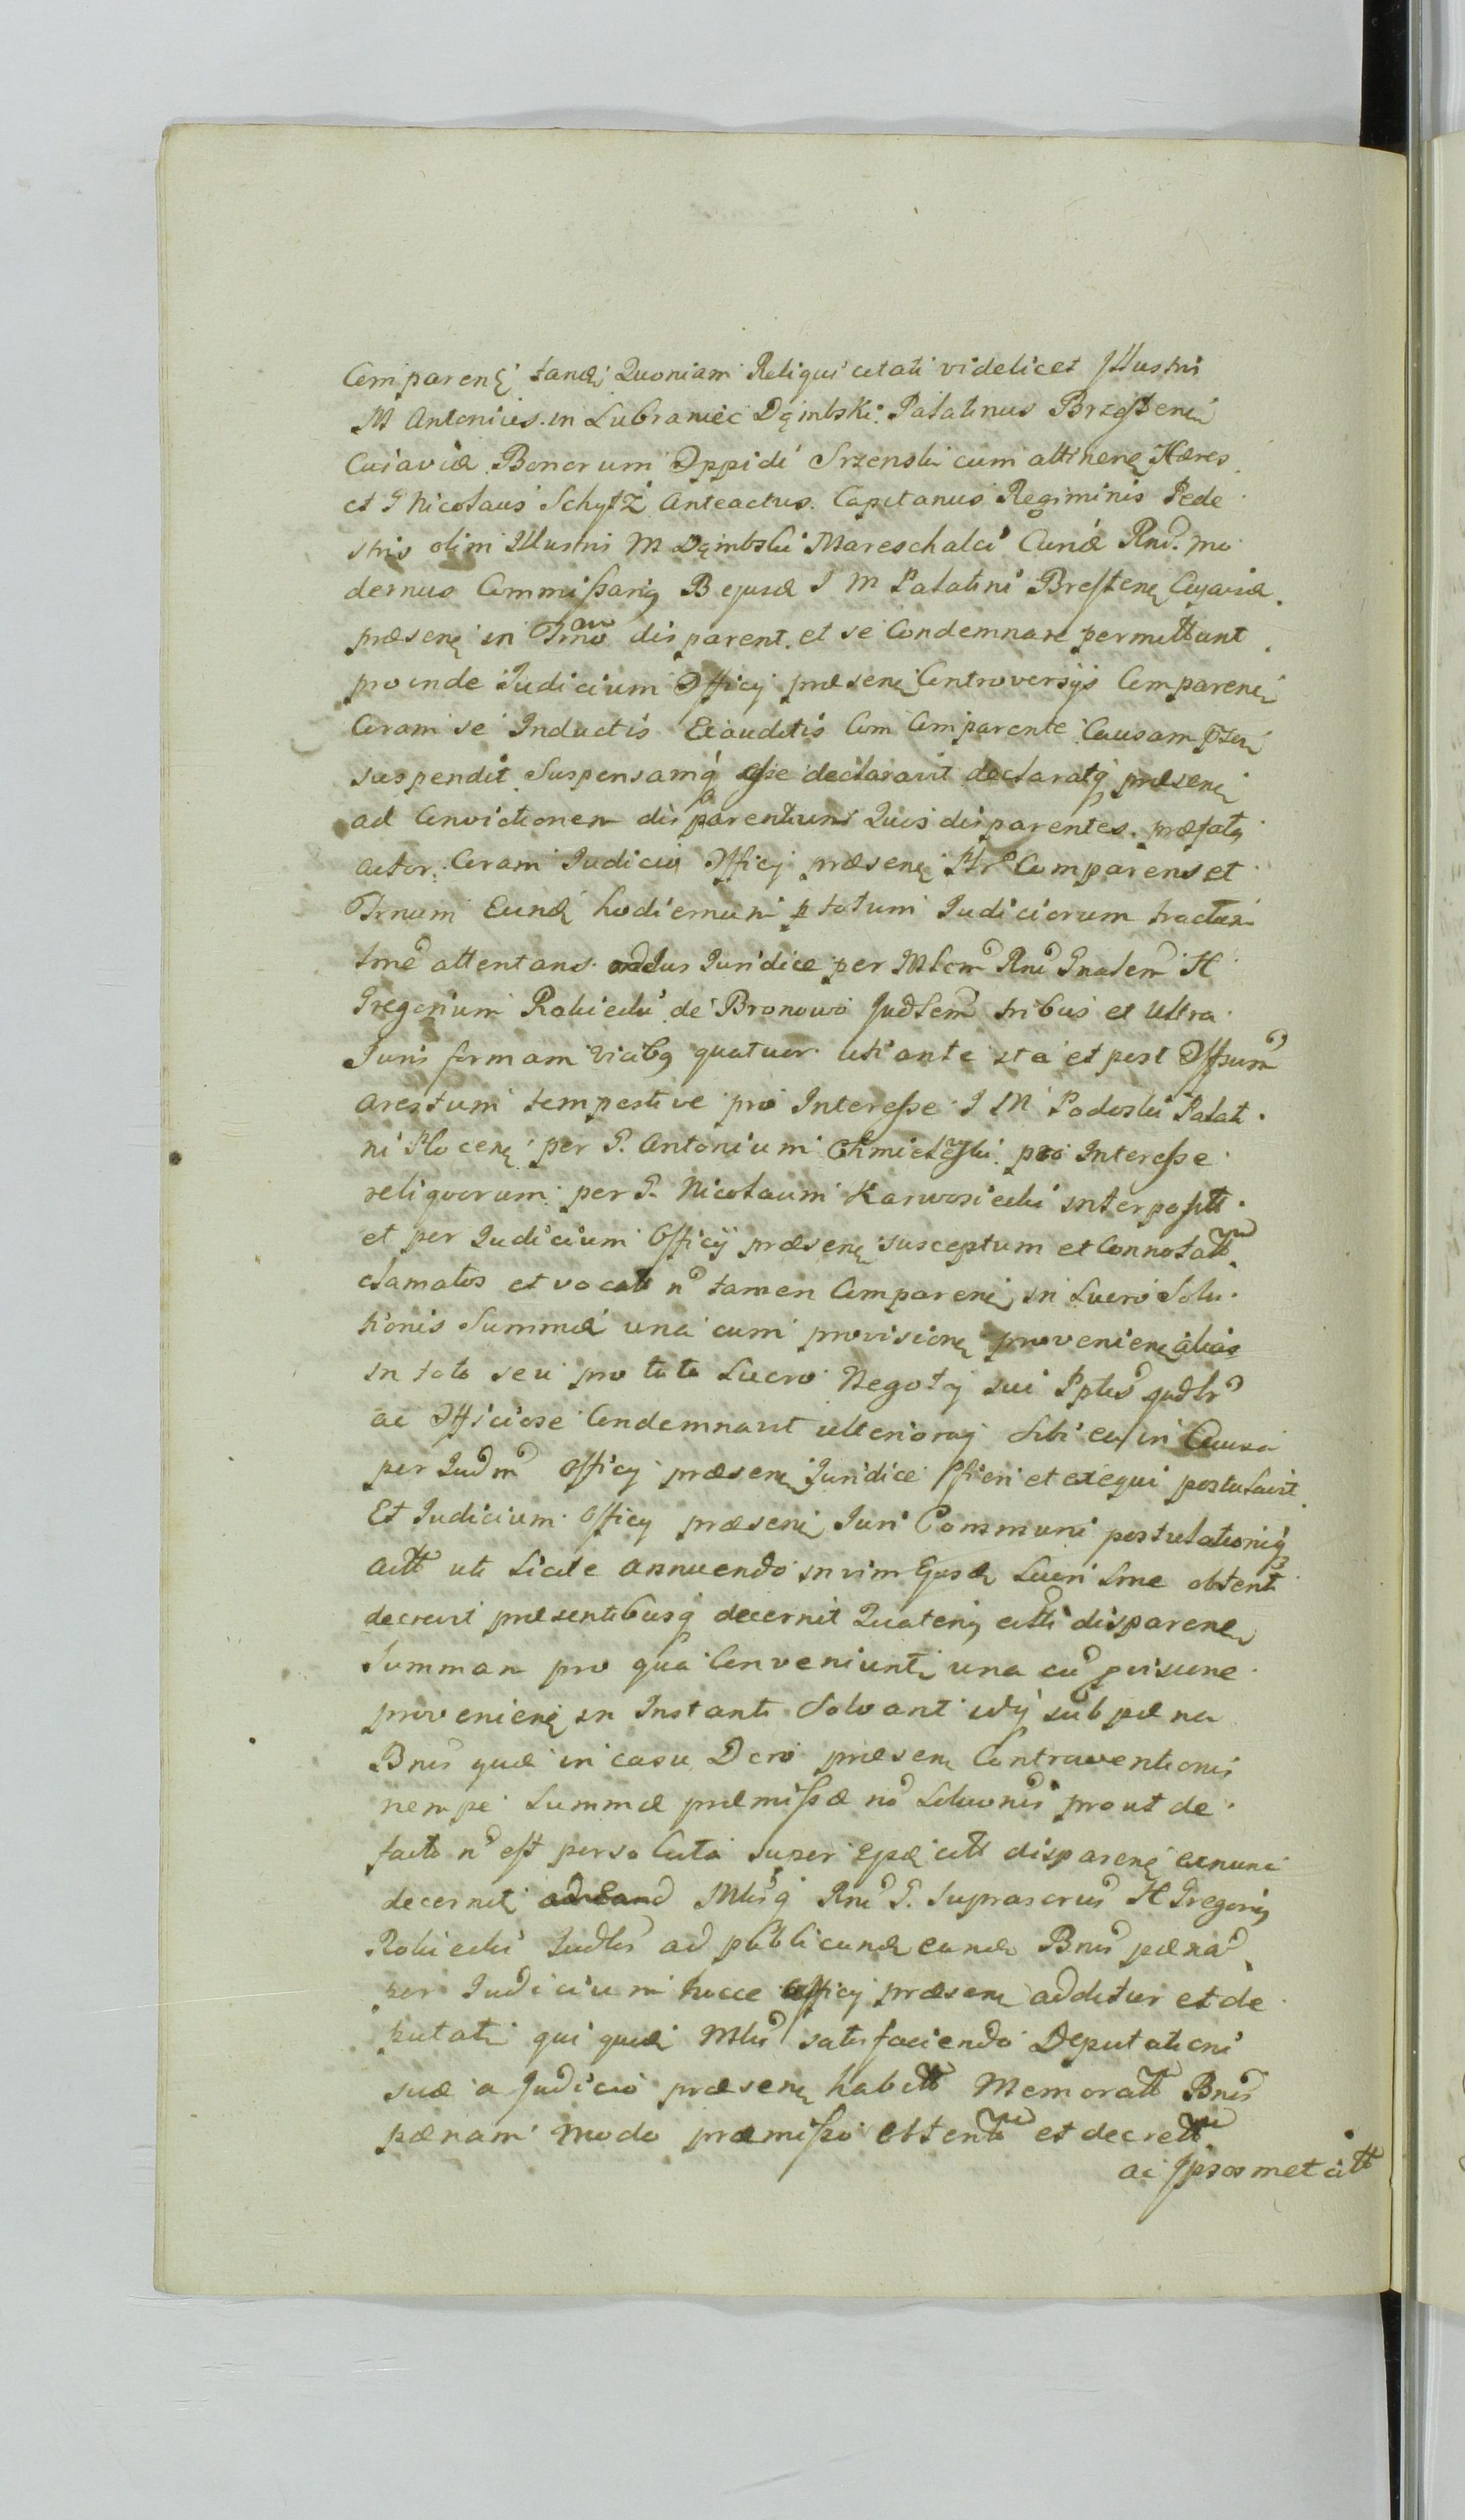 Comparen tand Quoniam Reliqui citati videlicet Illustris
M Antonius in Lubraniec Dąmbski Palatinus Brzesten
Cuiaviæ Bonorum Oppidi Srzenski cum attinen Hæres
et G Nicolaus Schytz Anteactus Capitanus Regiminis Pede
stris olim Illustris M Dąmbski Mareschalci Curiæ Rni mo
dernus Commissariq B ejusd I M Palatini Bresten Cujaviæ
præsen in Trno disparent et se Condemnare permittunt
proinde Judicium Officij præsen Controversijs Comparen
Coram se Inductis Exauditis Com Comparente Causam
suspendit Suspensamq esse declaravit declaratq præsen
ad Convictionem disparentium Quos disparentes præfatq
actor Coram Judicio Officij præsen Ptr Comparens et
Trnum Eund hodiernum p totum Judiciorum tractum
tme attentans Juridice per Mlem Rni Gnalem H
Gregorium Rokicki de Bronowo Judlem tribus et Ultra
Juris formam vicibq quatuor uti ante ita et post Offsum
arestum tempestive pro Interesse I M Podoski Palati
ni Plocen per G. Antonium Chmielewski pro Interesse
reliquorum per G. Nicolaum Karwosiecki interposit
et per Judicium Officij præsen susceptum et Connotatt
clamatos et vocatt n tamen Comparen in Lucro Solu
tionis Summæ una cum provision provenien alias
in toto seu pro toto Lucro Negotij sui Ptus Judlr
ac Officiose Condemnavit ulterioraq sibi ea in Causa
per Judm Officij præsen Juridice fieri et exequi postulavit
Et Judicium Officij præsen Juri Communi postulationiq
actt uti licite annuendo in vim Ejusd Lucri tme obtent
decrevit præsentibusq decernit Quatenq citti disparen
Summam pro qua Conveniunt una cu pvisione
provenien in Instanti Solvant idq sub pæna
Bnis quæ in casu Dcro præsen Contraventionis
nempe Summæ præmissæ no Solutionis prout de
facto n est persoluta super citt disparen exnunc
decernit Mlisq Rni G. Suprascrus H Gregorq
Rokicki Judlis ad publicand eand Bnis pæna
per Judicium hocce Officij præsen additur et de
putatr qui quid Mlis satisfaciendo Deputationi
suæ a Judicio præsen habitt Memoratt Bnis
pænam modo præmisso obtentt et decrett
ac Ipsosmet citt